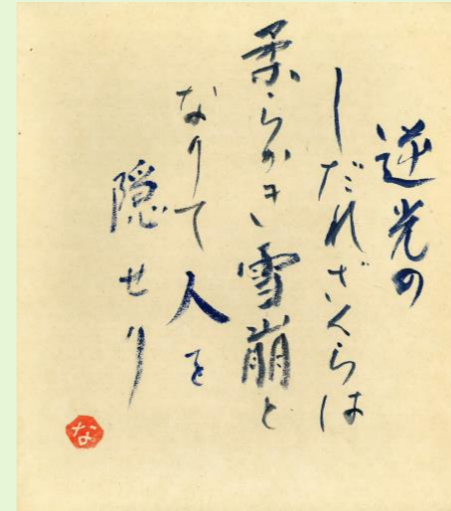 逆光の
しだれざくらは
柔らかき雪崩と
なりて人を
隠せり
な